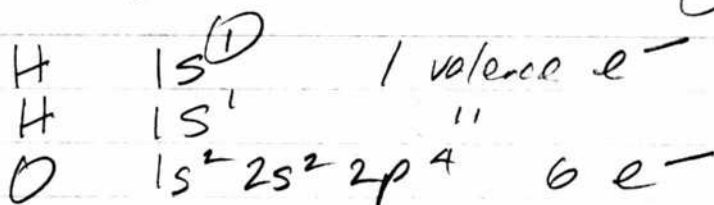 H 1s¹ 1 valence e⁻
H 1s¹ "
O 1s² 2s² 2p⁴ 6 e⁻